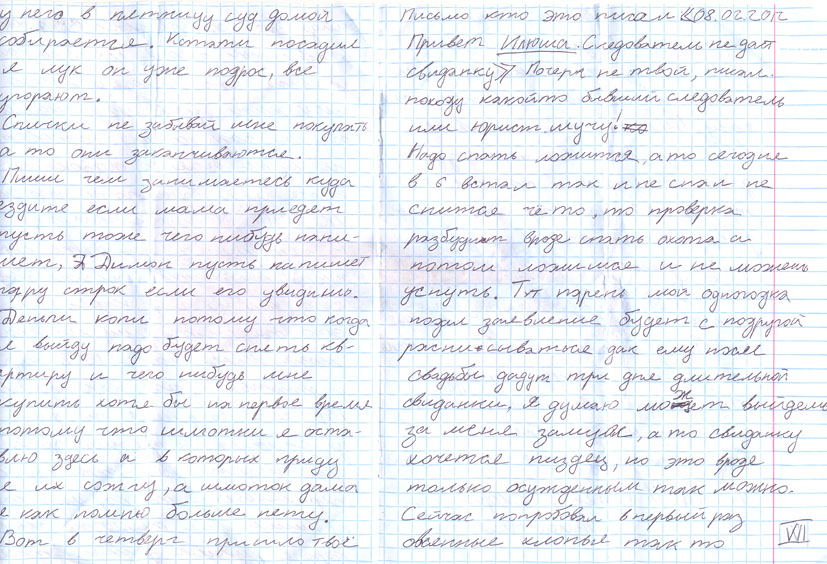 у него в пятницу суд домой
собирается. Кстати посадил
я лук он уже подрос, все
угорают.
Спички не забывай мне покупать
а то они заканчиваются.
Пиши чем занимаетесь куда
ездите если мама приедет
пусть тоже чего нибудь напи-
шет, Димон пусть напишет
пару строк если его увидишь.
Деньги копи потому что когда
я выйду надо будет снять кв-
артиру и чего нибудь мне
купить хотя бы на первое время
потому что шмотки я оста-
влю здесь а в которых приду
я их сожгу, а шмоток дома
я как помню больше нету.
Вот в четверг пришло твоё
Письмо кто это писал «08.02.2012
Привет Илюша. Следователь не даёт
свиданку» Почерк не твой, писал
походу какойто бывший следователь
или юрист. шучу!
Надо спать ложится, а то сегодня
в 6 встал так и не спал не
спится чё то, то проверка
разбудит вроде спать охота а
потом ложишся и не можешь
уснуть. Тут парень мой одногодка
подал заявление будет с подругой
расписываться дак ему после
свадьбы дадут три дня длительной
свиданки, Я думаю может выйдешь
за меня замуж, а то свиданку
хочется пиздец, но это вроде
только осужденным так можно.
Сейчас попробовал в первый раз
овсянные хлопья так то
VII